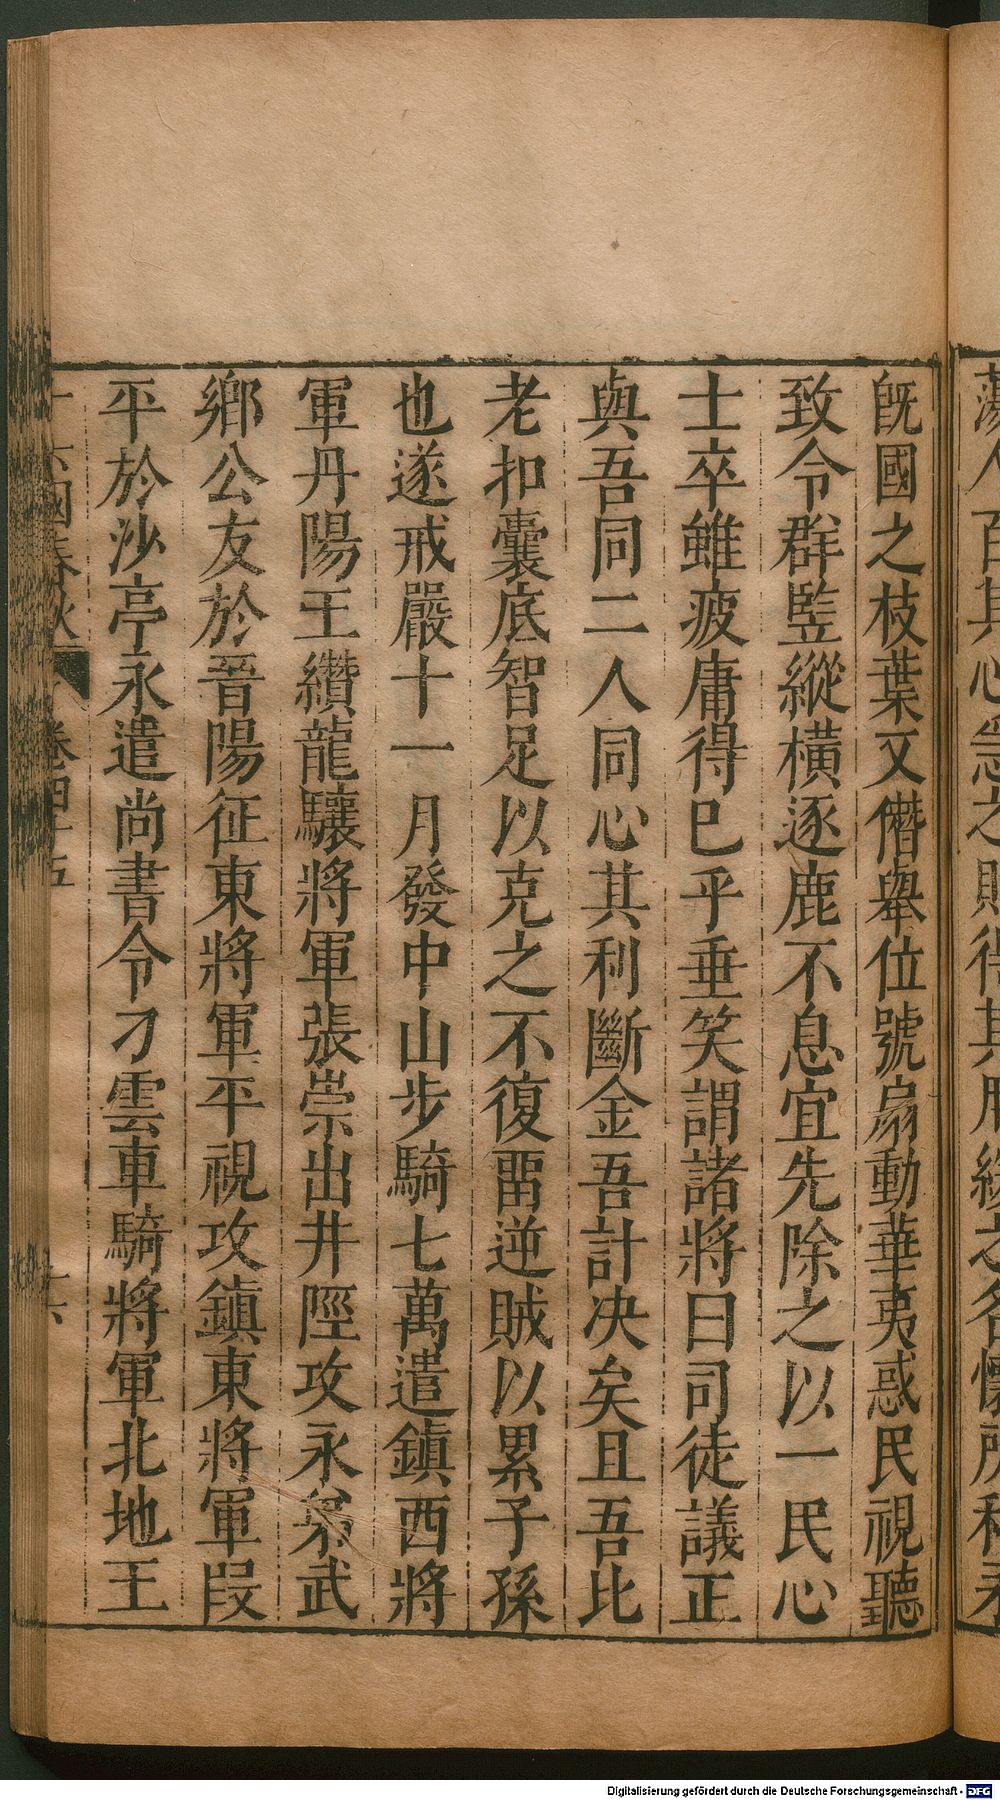 旣國之枝葉又僭舉位號扇動華夷惑民視聽
致令群竪縱橫逐鹿不息宜先除之以一民心
士卒雖疲庸得巳乎垂笑謂諸將曰司徒議正
與吾同二人同心其利斷金吾計决矣且吾比
老扣囊底智足以克之不復畱逆賊以累子孫
也遂戒嚴十一月發中山步騎七萬遣鎮西將
軍丹陽王纘龍驤將軍張崇出井陘攻永弟武
鄉公友於晉陽征東將軍平視攻鎮東將軍段
平於沙亭永遣尚書令刁雲車騎將軍北地王
卷四十五
Digitalisierung gefördert durch die Deutsche Forschungsgemeinschaft - DFG